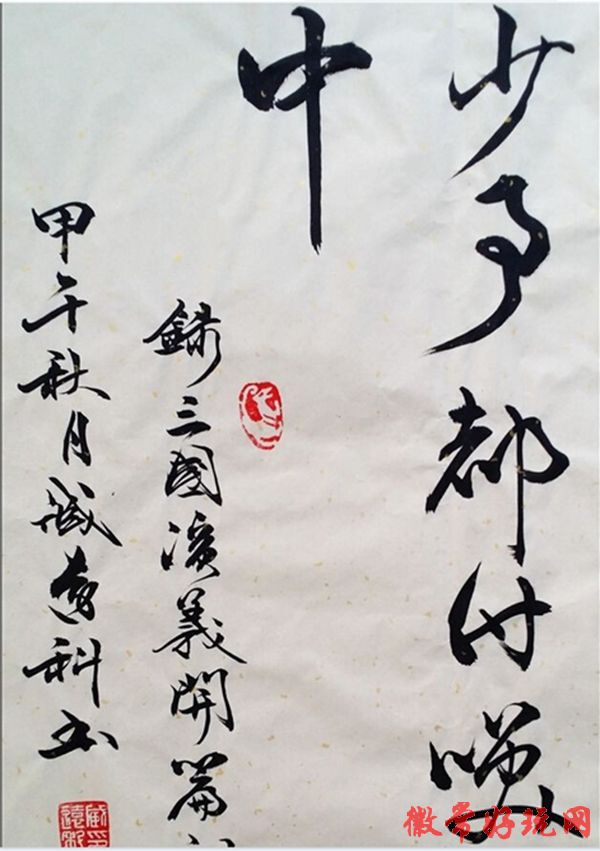 少事都付笑
中
錄三國演義開篇
甲午秋月科书
徽常好玩网